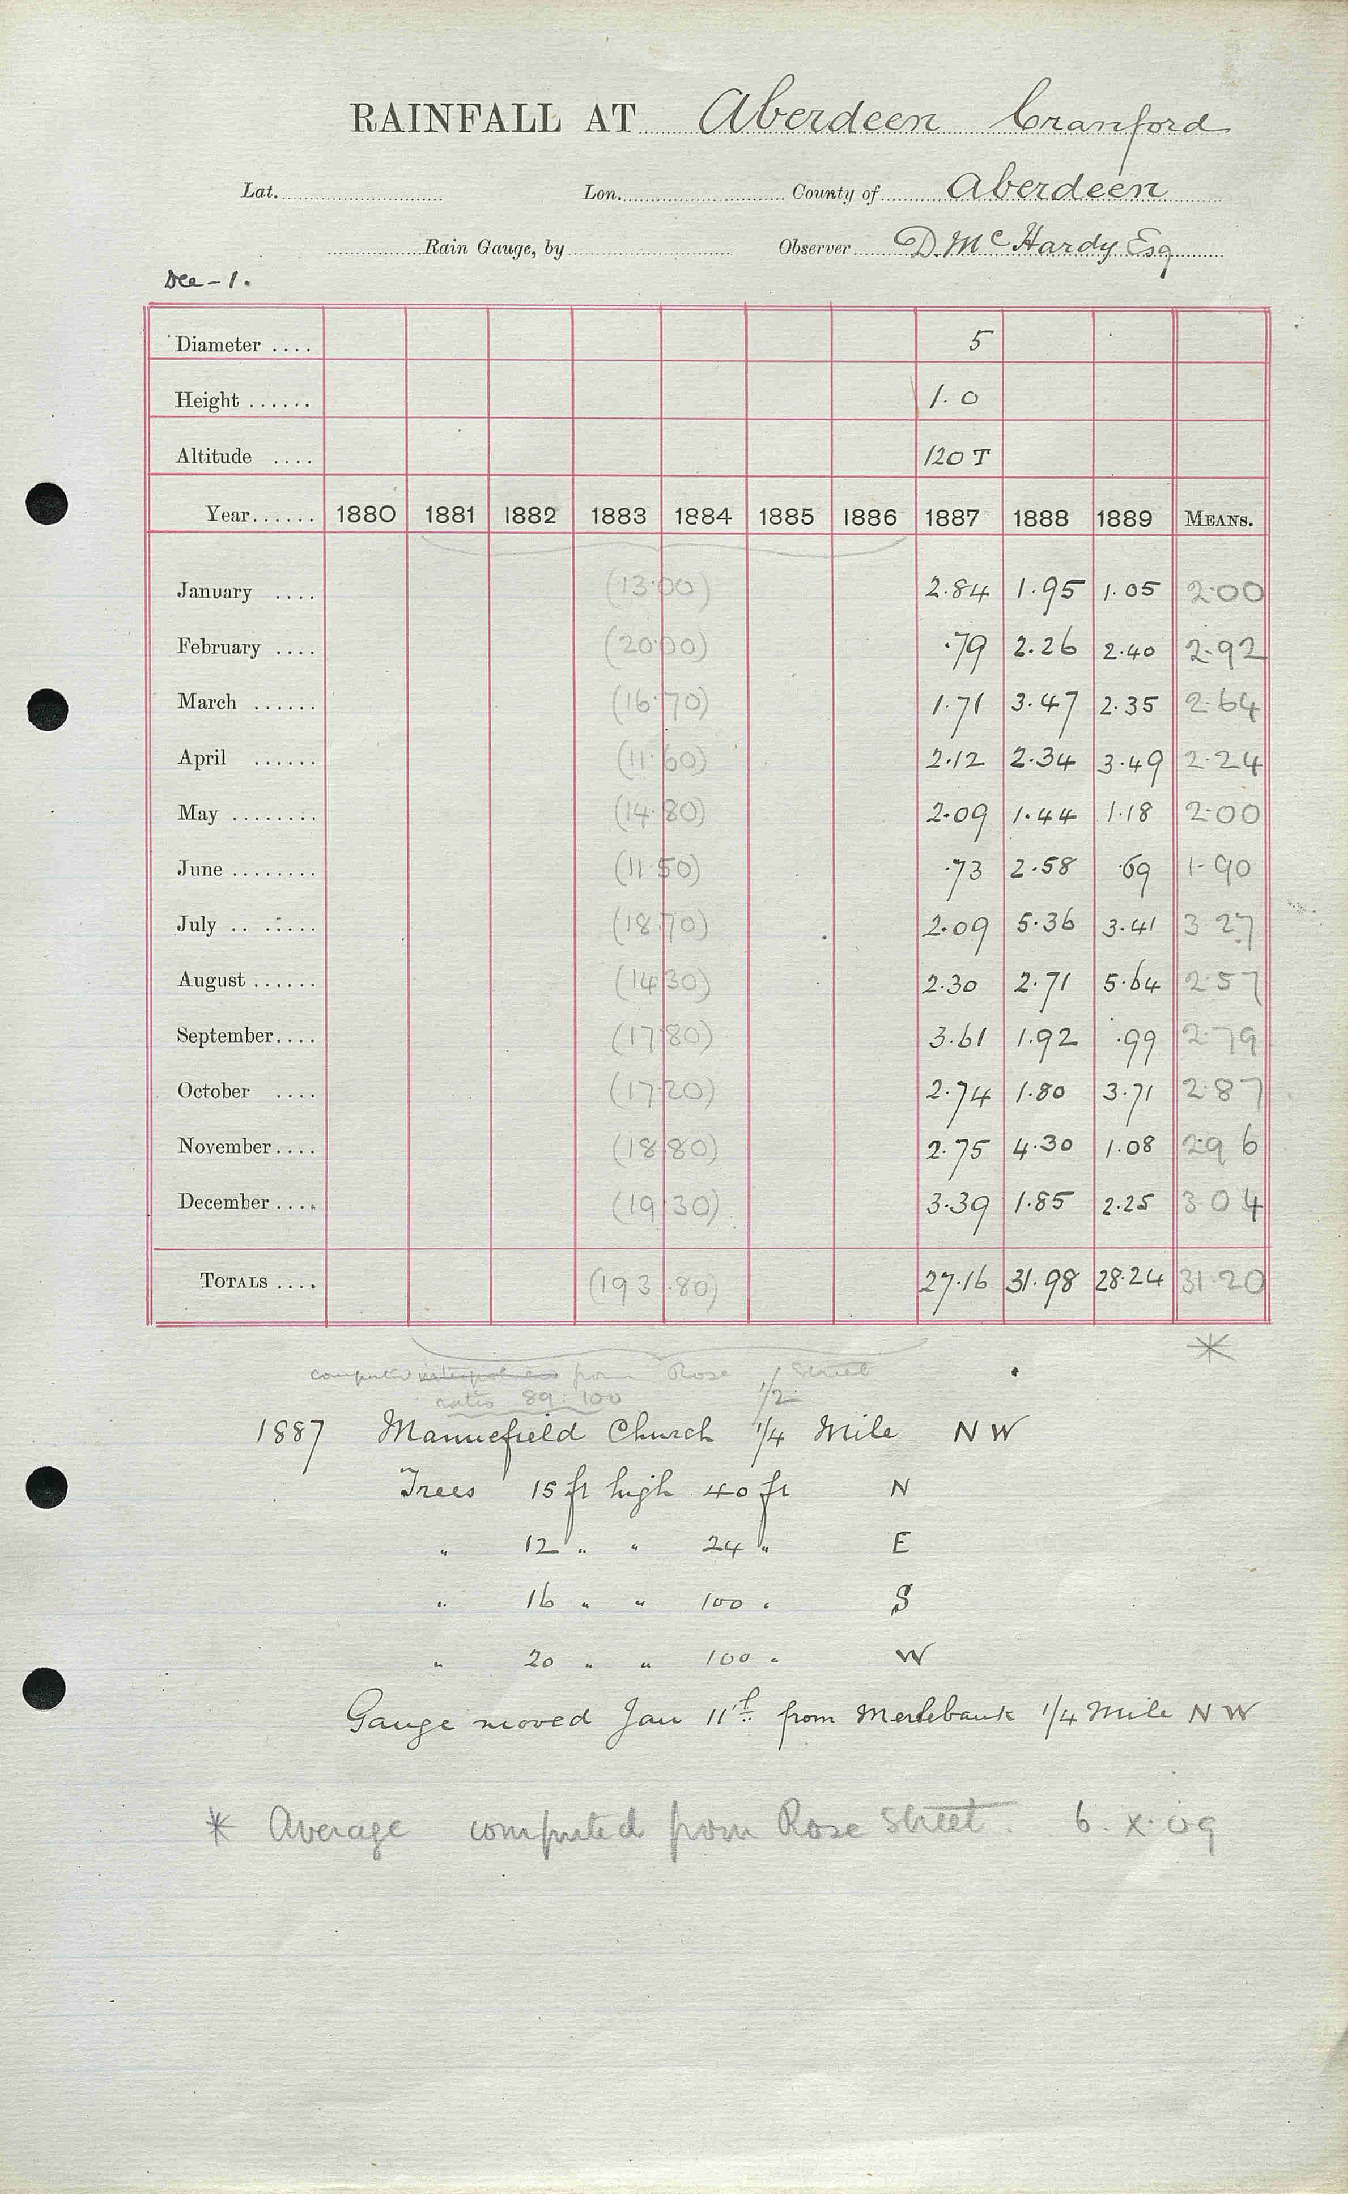 RAINFALL AT Aberdeen Cranford
Lat. Lon. County of Aberdeen
Rain Gauge, by Observer D. McHardy Esq
Dee - 1.
Diameter .... 5
Height ...... 1.0
Altitude .... 120 T
Year...... 1880 1881 1882 1883 1884 1885 1886 1887 1888 1889 MEANS.
January .... (13.00) 2.84 1.95 1.05 2.00
February .... (20.00) .79 2.26 2.40 2.92
March ...... (16.70) 1.71 3.47 2.35 2.64
April ...... (11.60) 2.12 2.34 3.49 2.24
May ........ (14.80) 2.09 1.44 1.18 2.00
June ........ (11.50) .73 2.58 .69 1.90
July ........ (18.70) 2.09 5.36 3.41 3.27
August ...... (14.30) 2.30 2.71 5.64 2.57
September.... (17.80) 3.61 1.92 .99 2.79
October .... (17.20) 2.74 1.80 3.71 2.87
November .... (18.80) 2.75 4.30 1.08 2.96
December .... (19.30) 3.39 1.85 2.25 3.04
TOTALS .... (193.80) 27.16 31.98 28.24 31.20
*
computed from Rose Street
ratio 89:100 1/2
1887 Mannefield Church 1/4 Mile N W
Trees 15 ft high 40 ft N
" 12 " " 24 " E
" 16 " " 100 " S
" 20 " " 100 " W
Gauge moved Jan 11th from Merlebank 1/4 Mile N W
* Average computed from Rose Street. 6. X. 09